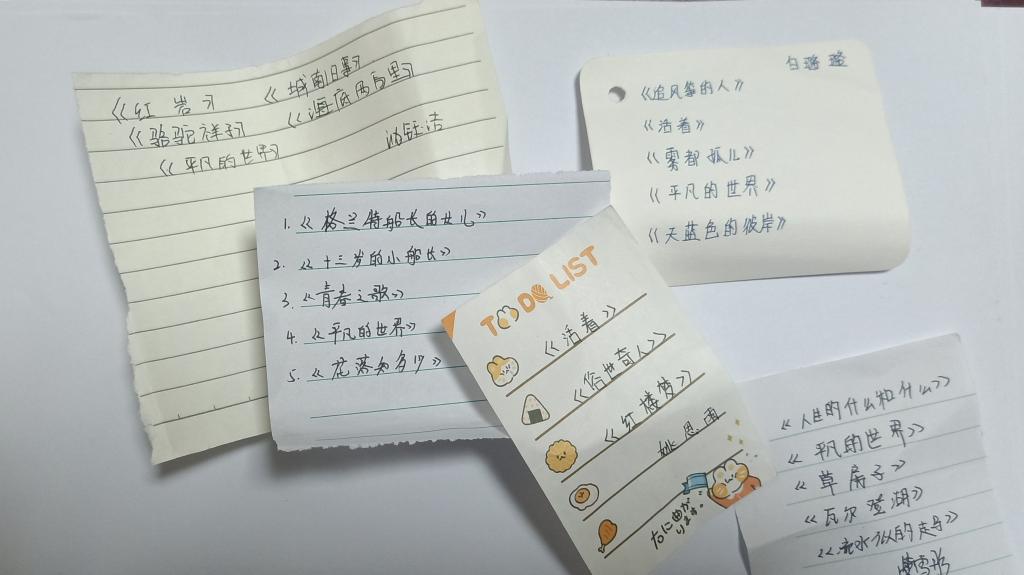 《红岩》 《城南旧事》
《骆驼祥子》 《海底两万里》
《平凡的世界》
1.《格兰特船长的女儿》
2.《十三岁的小船长》
3.《青春之歌》
4.《平凡的世界》
5.《花落知多少》
TO DO LIST
《活着》
《俗世奇人》
《红楼梦》
姚恩雨
右に曲が
ります。
白瑶瑶
《追风筝的人》
《活着》
《雾都孤儿》
《平凡的世界》
《天蓝色的彼岸》
《人生的什么和什么》
《平凡的世界》
《草房子》
《瓦尔登湖》
《流水似的走马》